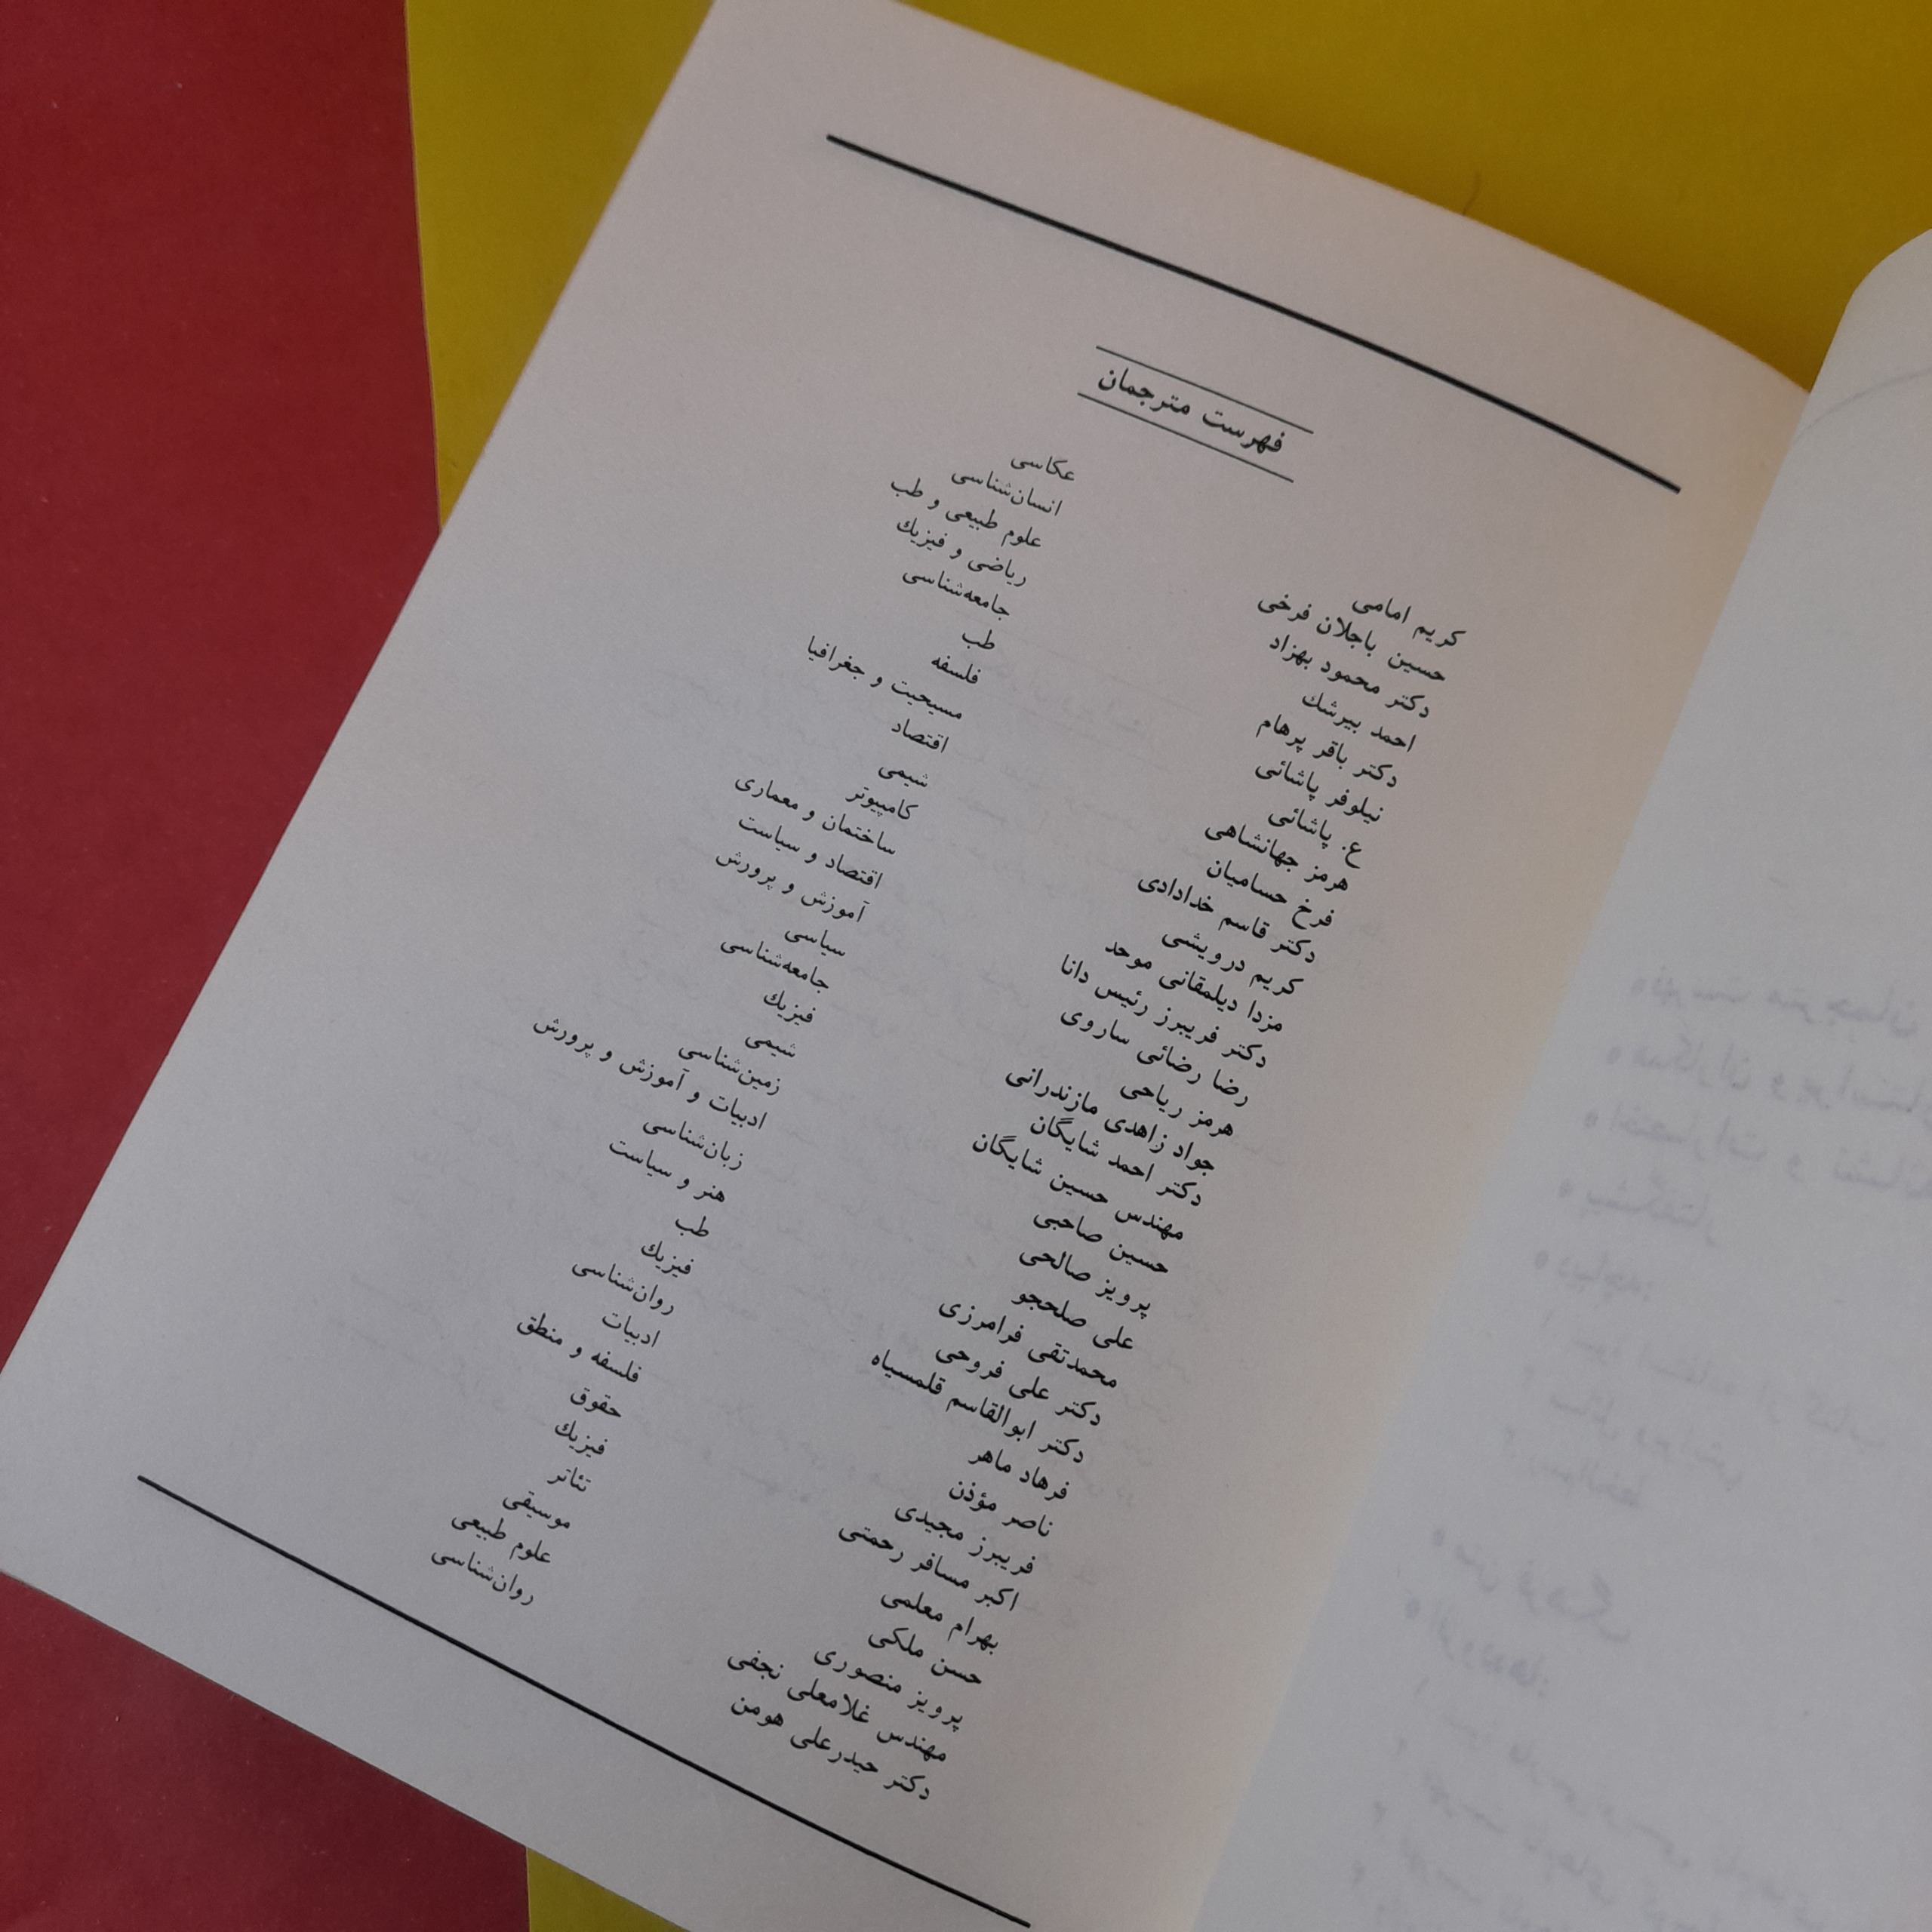 فهرست مترجمان
کریم امامی عکاسی
حسین باجلان فرخی انسان‌شناسی
دکتر محمود بهزاد علوم طبیعی و طب
احمد بیرشك ریاضی و فیزیك
دکتر باقر پرهام جامعه‌شناسی
نیلوفر پاشائی طب
ع. پاشائی فلسفه
هرمز جهانشاهی مسیحیت و جغرافیا
فرخ حسامیان اقتصاد
دکتر قاسم خدادادی شیمی
کریم درویشی کامپیوتر
مزدا دیلمقانی موحد ساختمان و معماری
دکتر فریبرز رئیس دانا اقتصاد و سیاست
رضا رضائی ساروی آموزش و پرورش
هرمز ریاحی سیاسی
جواد زاهدی مازندرانی جامعه‌شناسی
دکتر احمد شایگان فیزیك
مهندس حسین شایگان شیمی
حسین صاحبی زمین‌شناسی
پرویز صالحی ادبیات و آموزش و پرورش
علی صلحجو زبان‌شناسی
محمدتقی فرامرزی هنر و سیاست
دکتر علی فروحی طب
دکتر ابوالقاسم قلمسیاه فیزیك
فرهاد ماهر روان‌شناسی
ناصر مؤذن ادبیات
فریبرز مجیدی فلسفه و منطق
اکبر مسافر رحمتی حقوق
بهرام معلمی فیزیك
حسن ملکی تئاتر
پرویز منصوری موسیقی
مهندس غلامعلی نجفی علوم طبیعی
دکتر حیدرعلی هومن روان‌شناسی